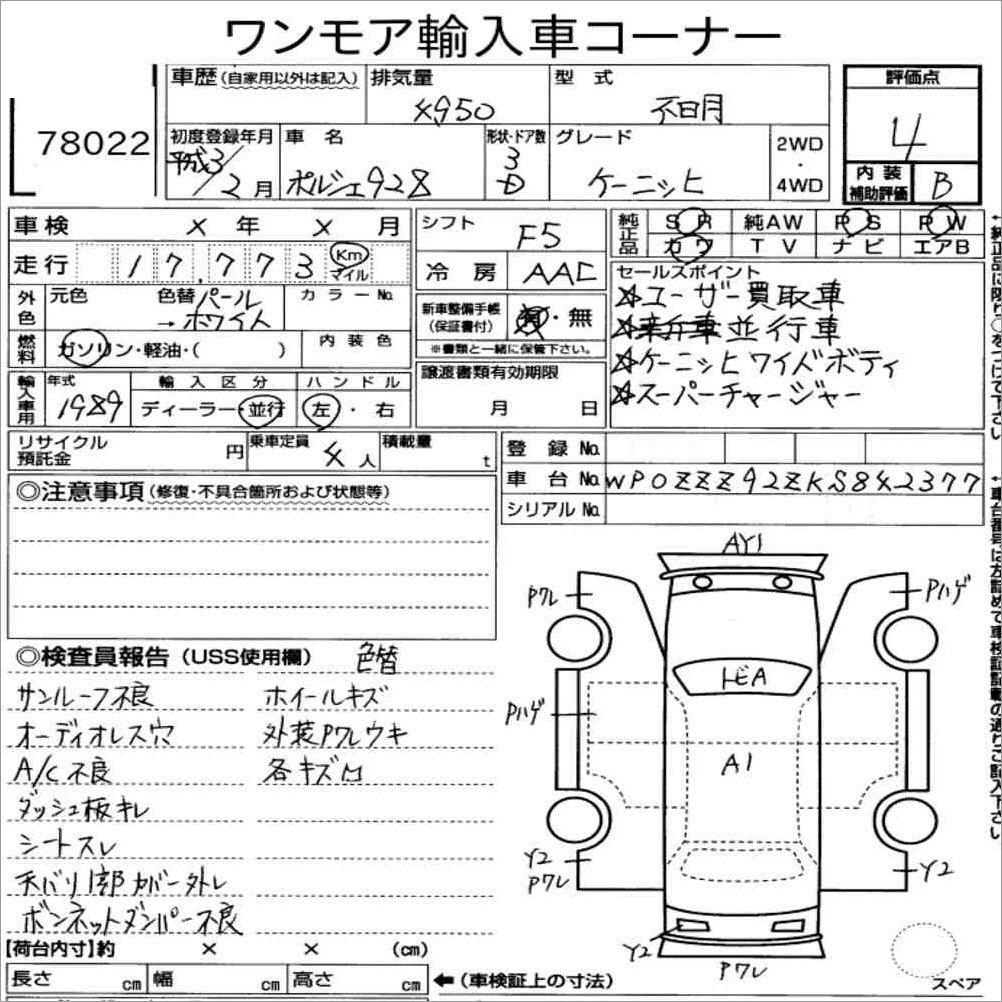 ワンモア輸入車コーナー
78022
車歴(自家用以外は記入) 排気量 型式 評価点
4950 不明 4
初度登録年月 車名 形状・ドア数 グレード 2WD・4WD
平成3/2月 ポルシェ928 3 D ケーニッヒ
内装補助評価 B
車検 × 年 × 月
シフト F5
純正品 SR 純AW PS PW
カワ TV ナビ エアB
走行 17,773 Km マイル
冷房 AAC
セールスポイント
☆ユーザー買取車
☆新車並行車
☆ケーニッヒワイドボディ
☆スーパーチャージャー
外色 元色 色替 パール→ホワイト カラーNo.
新車整備手帳(保証書付) 有・無
※書類と一緒に保管下さい。
燃料 ガソリン・軽油・( ) 内装色
譲渡書類有効期限
月 日
輸入車用 年式 1989 輸入区分 ディーラー・並行 ハンドル 左・右
リサイクル預託金 円 乗車定員 4人 積載量 t
登録No.
車台No. WP0ZZZ92ZKS842377
シリアルNo.
◎注意事項(修復・不具合箇所および状態等)
◎検査員報告(USS使用欄) 色替
サンルーフ不良 ホイールキズ
オーディオレス穴 外装Pワレウキ
A/C不良 各キズ凹
ダッシュ板キレ
シートスレ
天バリ1部カバー外レ
ボンネットダンパー不良
AY1
Pワレ Pハゲ
トビA
Pハゲ
A1
Y2 Pワレ Y2
Y2 Pワレ
スペア
【荷台内寸】約 × × (cm)
長さ cm 幅 cm 高さ cm ←(車検証上の寸法)